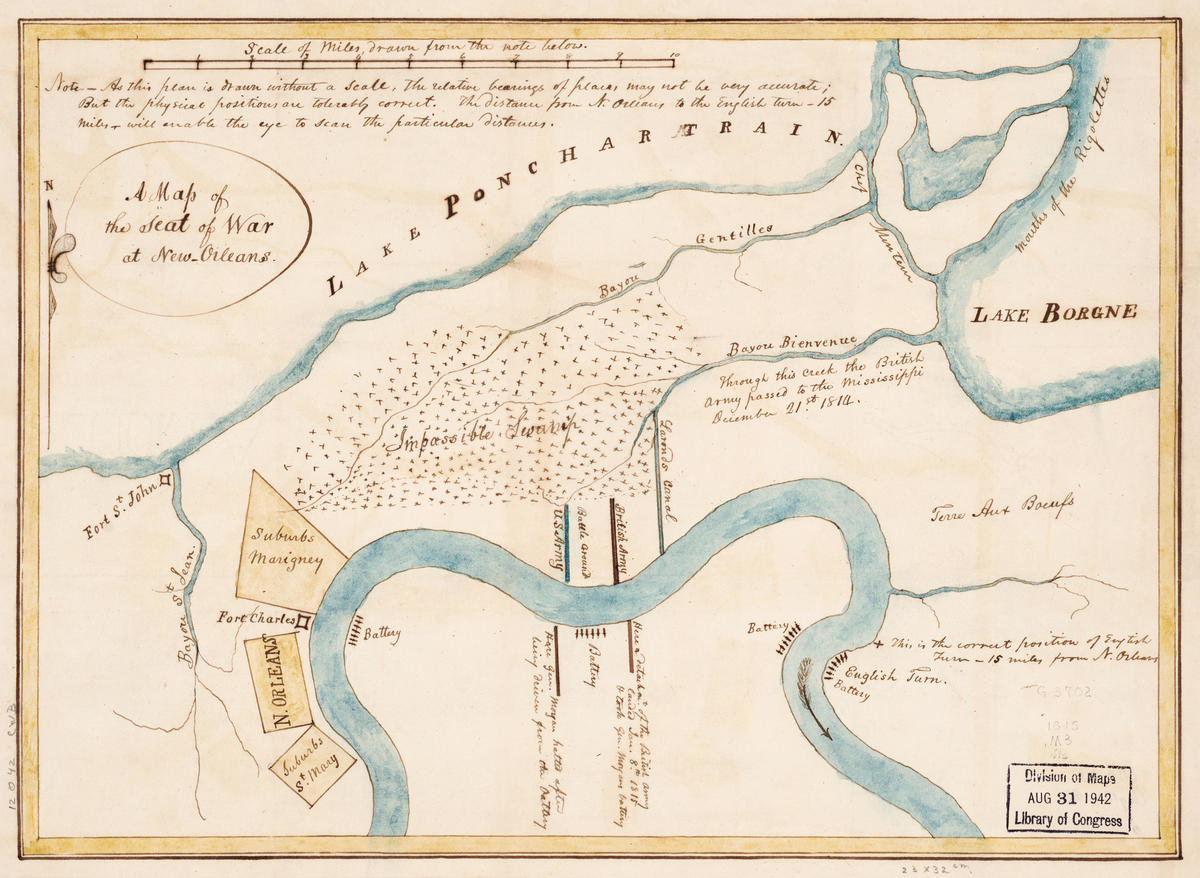 Scale of Miles, drawn from the note below.
1 2 3 4 5 6 7 8 9 10
Note – As this plan is drawn without a scale, the relative bearings of places may not be very accurate;
But the physical positions are tolerably correct. The distance from N. Orleans to the English turn – 15
miles + will enable the eye to scan the particular distances.
N
A Map of
the Seat of War
at New-Orleans.
LAKE PONCHARTRAIN.
Chef
Menteur
Mouths of the Rigolettes
LAKE BORGNE
Bayou Gentilles
Bayou Bienvenue
Through this creek the British
Army passed to the Mississippi
December 21.st 1814.
Impassible Swamp
Larond's Canal
Fort St. John
Bayou St. Jean.
Suburbs
Marigney
Fort Charles
N. ORLEANS
Suburbs
St. Mary
Battery
U.S. Army
Battle Ground
British Army
Here Gen. Morgan halted after
being driven from the battery
Battery
Here a detachmt. of the British army
landed Jan. 8th 1815
& took Gen. Morgans battery
Terre Aux Boeufs
Battery
+ This is the correct position of English
Turn – 15 miles from N. Orleans
English Turn.
Battery
G 3702
1815
.M3
Division of Maps
AUG 31 1942
Library of Congress
23 X 32 cm.